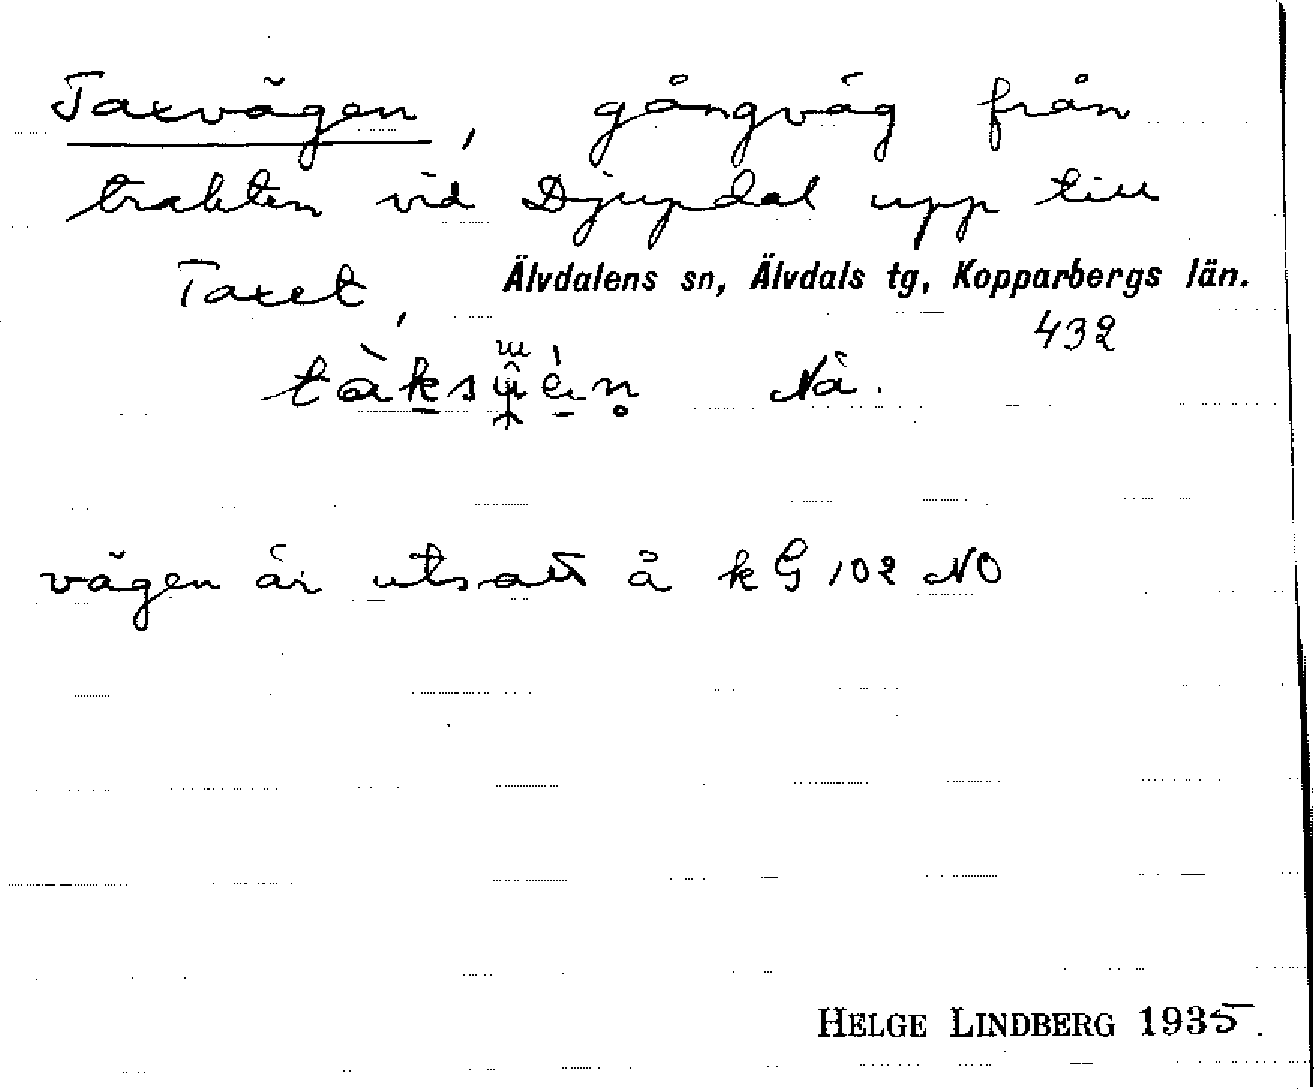 Taxvägen, gångväg från
trakten vid Djupdal upp till
Taxet, Älvdalens sn, Älvdals tg, Kopparbergs län.
432
Nä.
vägen är utsatt å kG 102 NO
HELGE LINDBERG 1935.